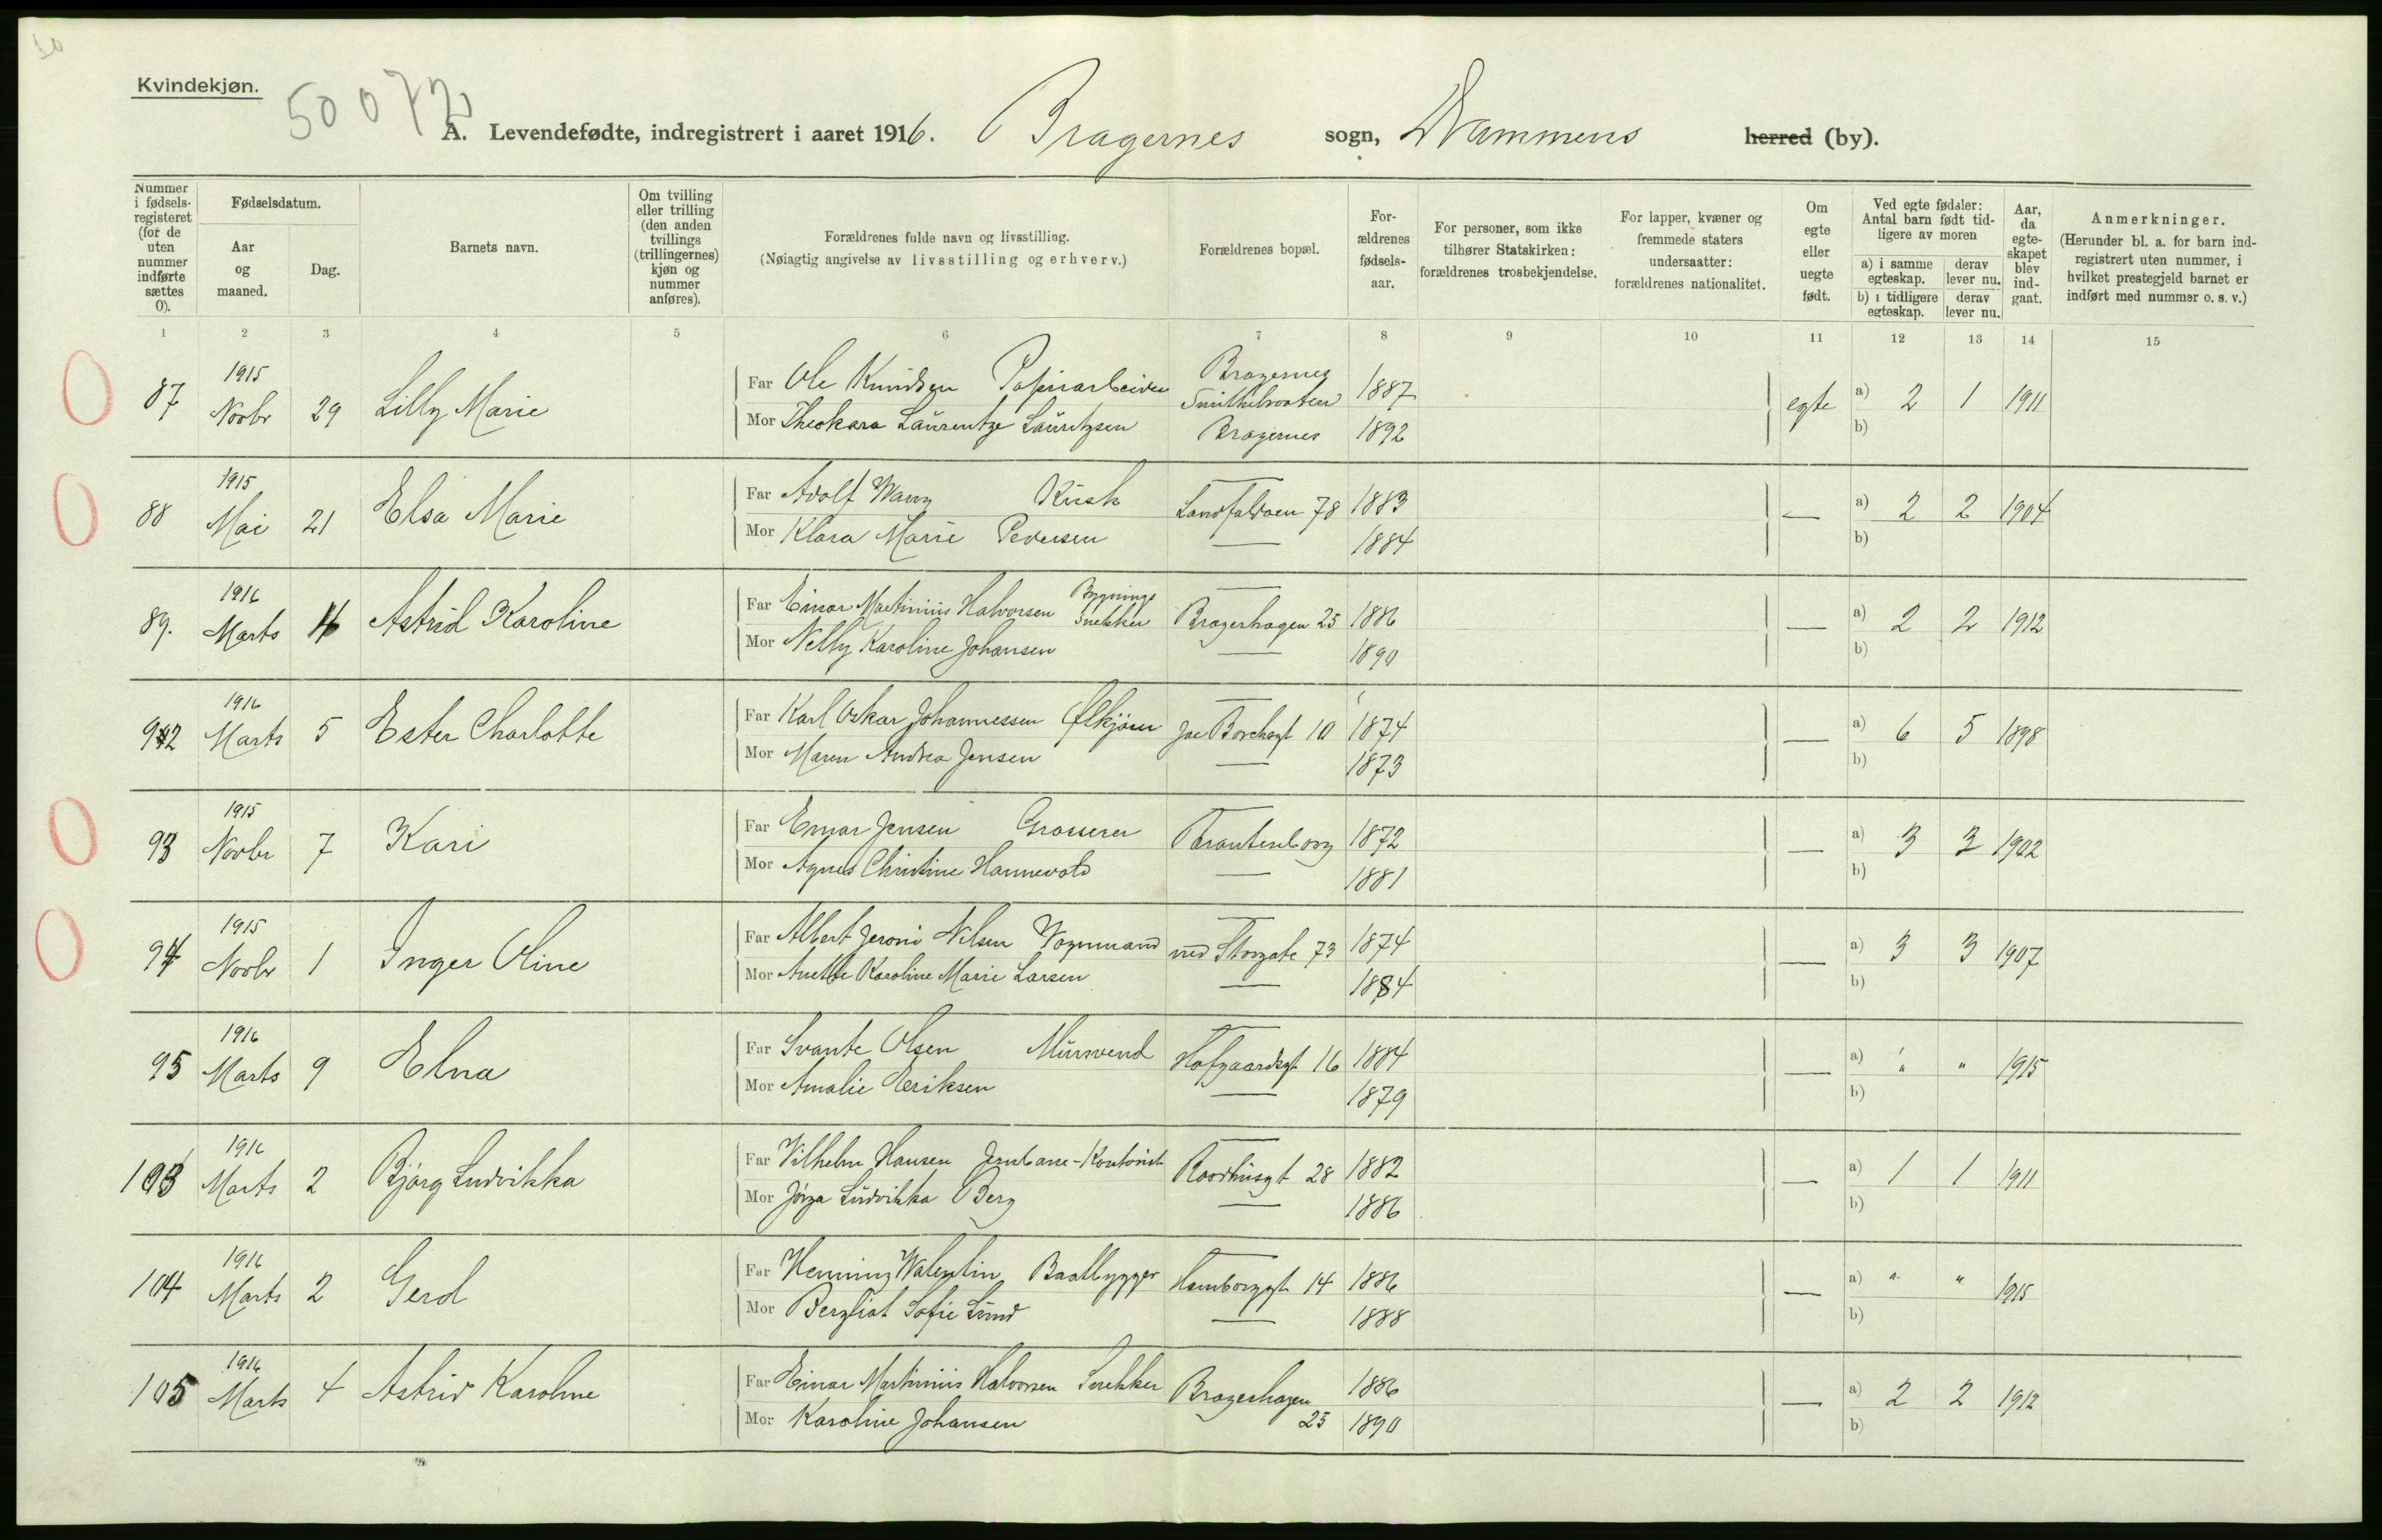 Kvindekjøn.
50072
A. Levendefødte, indregistrert i aaret 1916. Bragernes sogn, Drammens herred (by).
Nummer i fødselsregisteret (for de uten nummer indførte sættes 0).
Fødselsdatum.
Aar og maaned.
Dag.
Barnets navn.
Om tvilling eller trilling (den anden tvillings (trillingernes) kjøn og nummer anføres).
Forældrenes fulde navn og livsstilling.
(Nøiagtig angivelse av livsstilling og erhverv.)
Forældrenes bopæl.
Forældrenes fødselsaar.
For personer, som ikke tilhører Statskirken: forældrenes trosbekjendelse.
For lapper, kvæner og fremmede staters undersaatter: forældrenes nationalitet.
Om egte eller uegte født.
Ved egte fødsler: Antal barn født tidligere av moren
a) i samme egteskap. derav lever nu.
b) i tidligere egteskap. derav lever nu.
Aar, da egteskapet blev indgaat.
Anmerkninger.
(Herunder bl. a. for barn indregistrert uten nummer, i hvilket prestegjeld barnet er indført med nummer o. s. v.)
1 2 3 4 5 6 7 8 9 10 11 12 13 14 15
87 1915 Novbr 29 Lilly Marie Far Ole Knudsen Papirarbeider Bragernes 1887 egte a) 2 1 1911
Mor Laurentze Lauritzsen Bragernes 1892 b)
88 1915 Mai 21 Elsa Marie Far Adolf Wang Kusk Landfaldøen 78 1883 — a) 2 2 1904
Mor Klara Marie Pedersen — 1884 b)
89. 1916 Marts 4 Astrid Karoline Far Einar Martinius Halvorsen Bygnings Snekker Bragerhagen 25 1886 — a) 2 2 1912
Mor Nelly Karoline Johansen — 1890 b)
92 1916 Marts 5 Ester Charlotte Far Karl Oskar Johannessen Ølkjører Jac Borchsgt 10 1874 — a) 6 5 1898
Mor Maren Andrea Jensen — 1873 b)
93 1915 Novbr 7 Kari Far Einar Jensen Grosserer Brantenborg 1872 — a) 3 3 1902
Mor Agnes Christine Hannevold — 1881 b)
94 1915 Novbr 1 Inger Oline Far Albert Jeroni Nilsen Vognmand ned Storgate 73 1874 — a) 3 3 1907
Mor Anette Karoline Marie Larsen — 1884 b)
95 1916 Marts 9 Elna Far Svante Olsen Mursvend Hofgaardsgt 16 1884 — a) " " 1915
Mor Amalie Eriksen — 1879 b)
103 1916 Marts 2 Bjørg Ludvikka Far Vilhelm Hansen Jernbane-Kontorist Raadhusgt 28 1882 — a) 1 1 1911
Mor Jørga Ludvikka Berg — 1886 b)
104 1916 Marts 2 Gerd Far Henning Walentin Baatbygger Hamborggt 14 1886 — a) " " 1915
Mor Bergliot Sofie Lund — 1888 b)
105 1916 Marts 4 Astrid Karoline Far Einar Martinius Halvorsen Snekker Bragerhagen 1886 — a) 2 2 1912
Mor Karoline Johansen 25 1890 b)